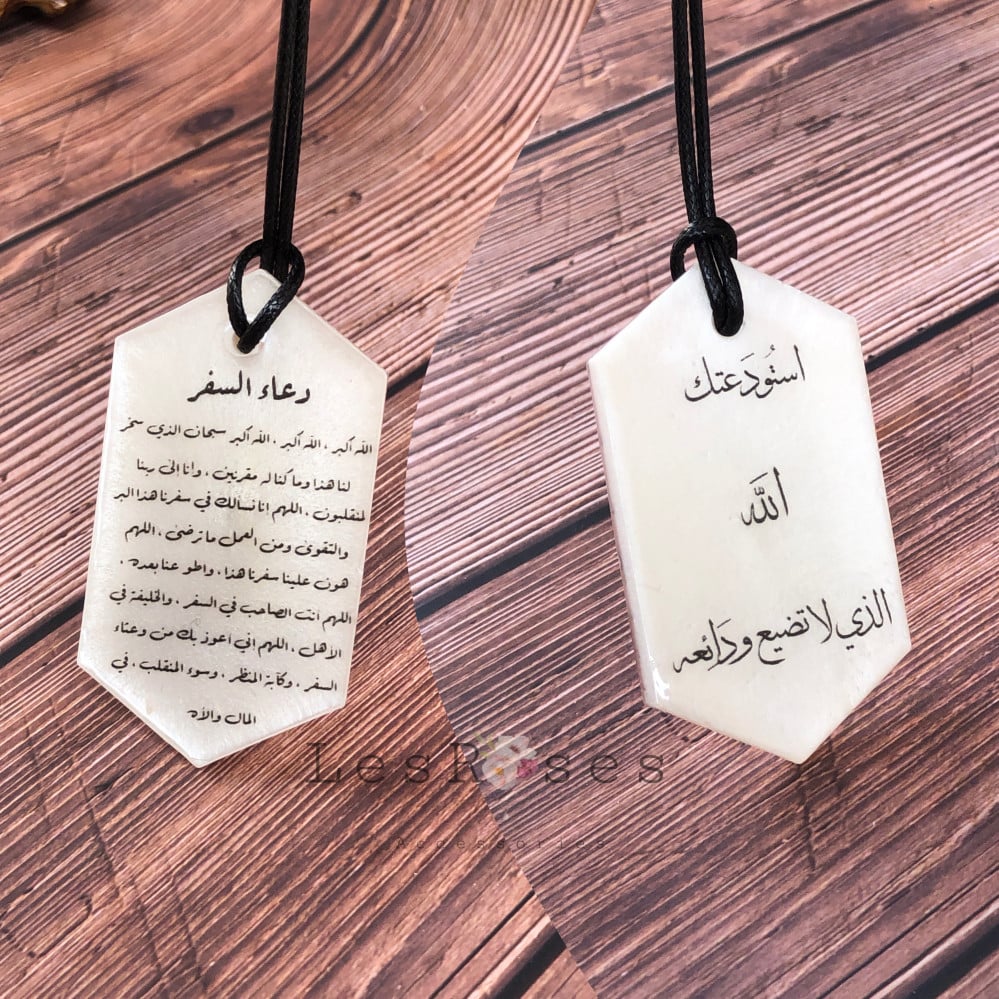 دعاء السفر
الله أكبر ، الله أكبر ، الله أكبر سبحان الذي سخر
لنا هذا وما كنا له مقرنين ، وانا إلى ربنا
لمنقلبون ، اللهم انا نسألك في سفرنا هذا البر
والتقوى ومن العمل ما ترضى ، اللهم
هون علينا سفرنا هذا ، واطو عنا بعده ،
اللهم انت الصاحب في السفر ، والخليفة في
الأهل ، اللهم اني أعوذ بك من وعثاء
السفر ، وكآبة المنظر ، وسوء المنقلب ، في
المال والأه
استُودَعتك
الله
الذي لا تضيع ودَائعه
LesRoses
Accessories